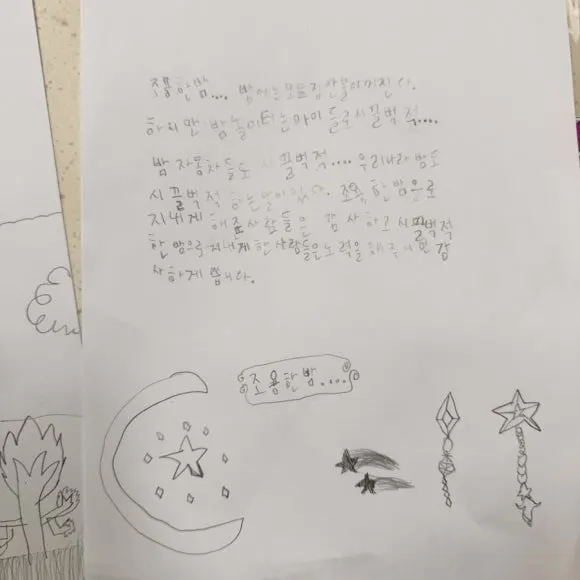 조용한밤.... 밤에는모든집 안불이꺼진다.
하지만 밤놀이터는아이들로시끌벅적....
밤 자동차들도 시끌벅적.... 우리나라 밤도
시끌벅적 하는날이있다. 조용한밤으로
지내게 해준사람들은 감사하고 시끌벅적
한 밤으로 지내게한사람들은노력을해주시면 감
사하게 씁니다.
조용한밤....